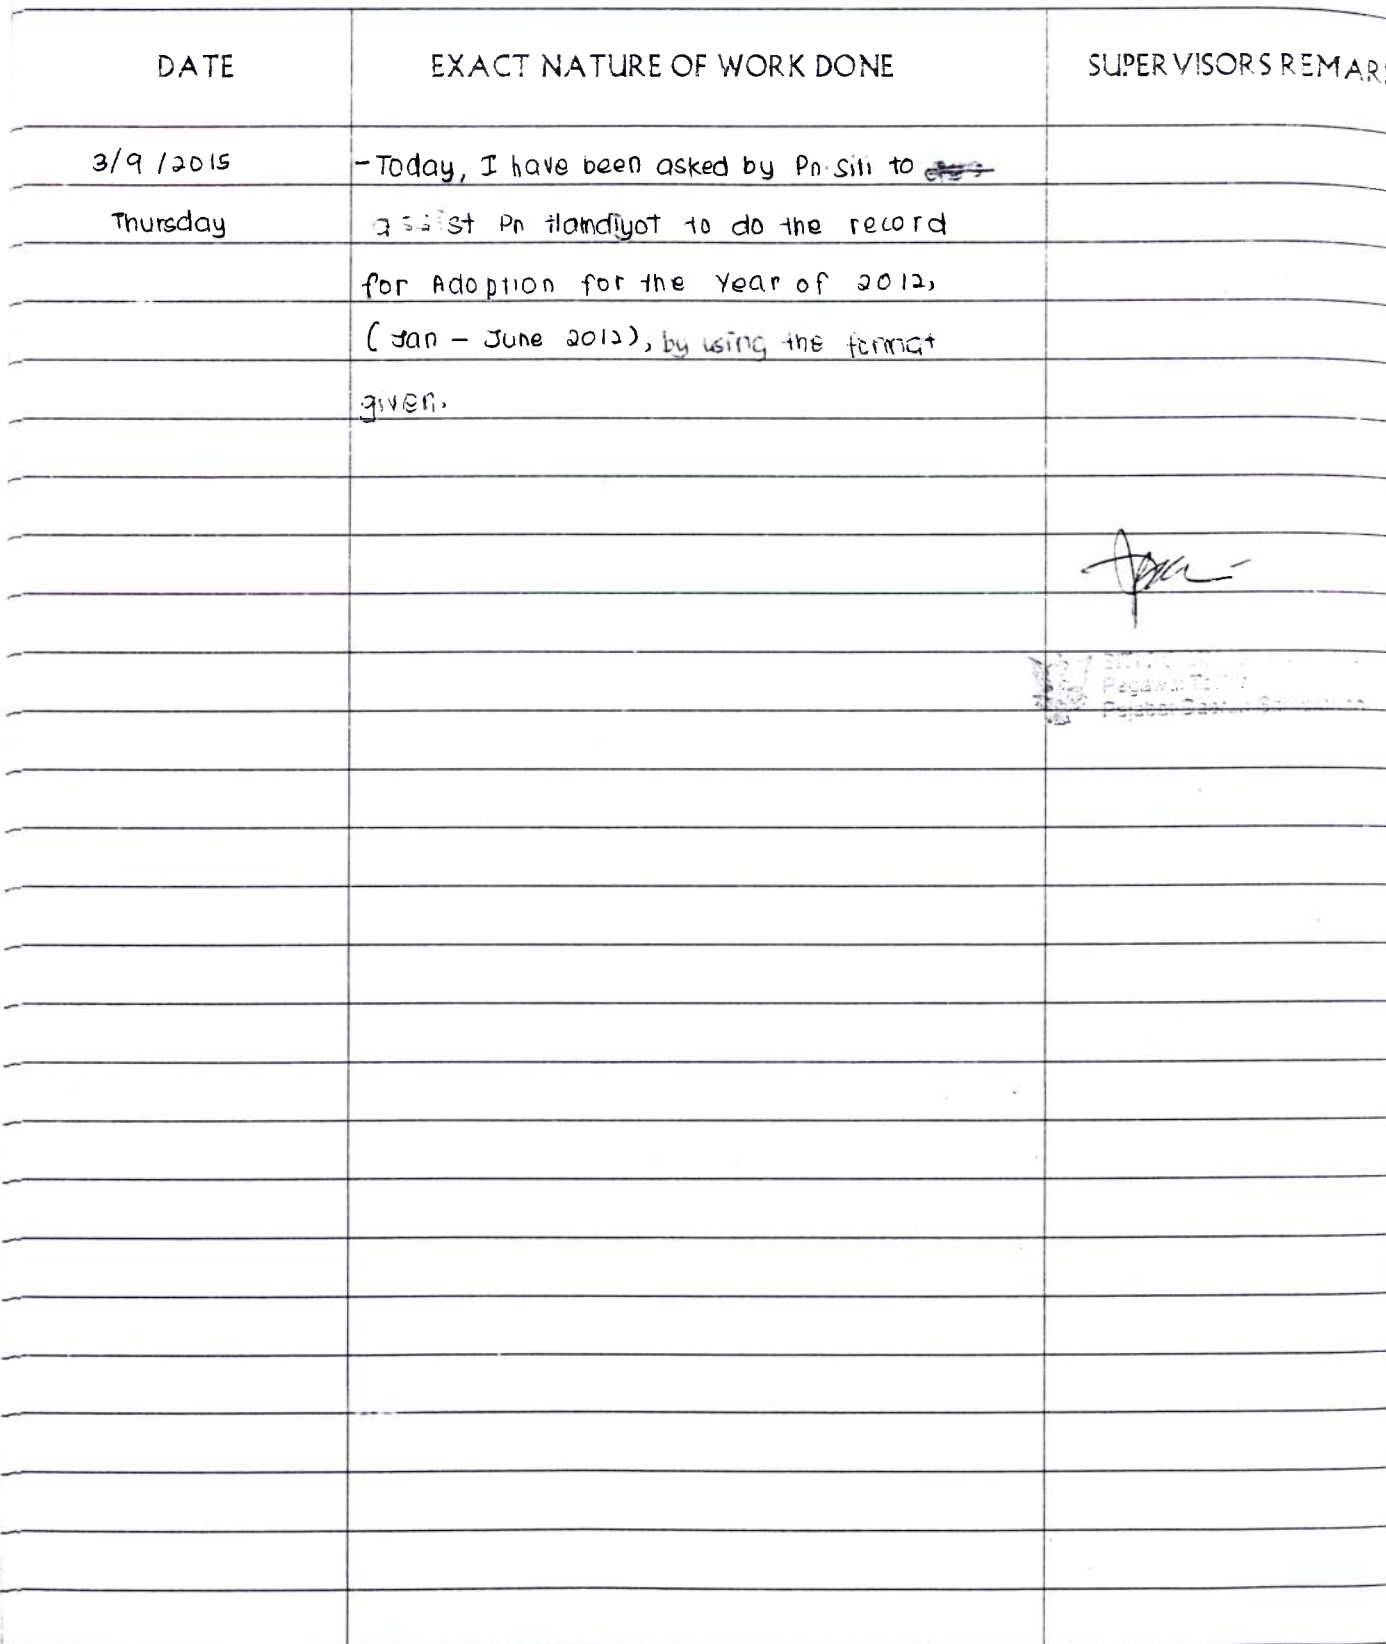 DATE EXACT NATURE OF WORK DONE SUPERVISORS REMAR
3/9/2015 - Today, I have been asked by Pn. Siti to
Thursday assist Pn Hamdiyot to do the record
for Adoption for the Year of 2012,
(Jan - June 2012), by using the format
given.
Pegawai
Pejabat Daerah